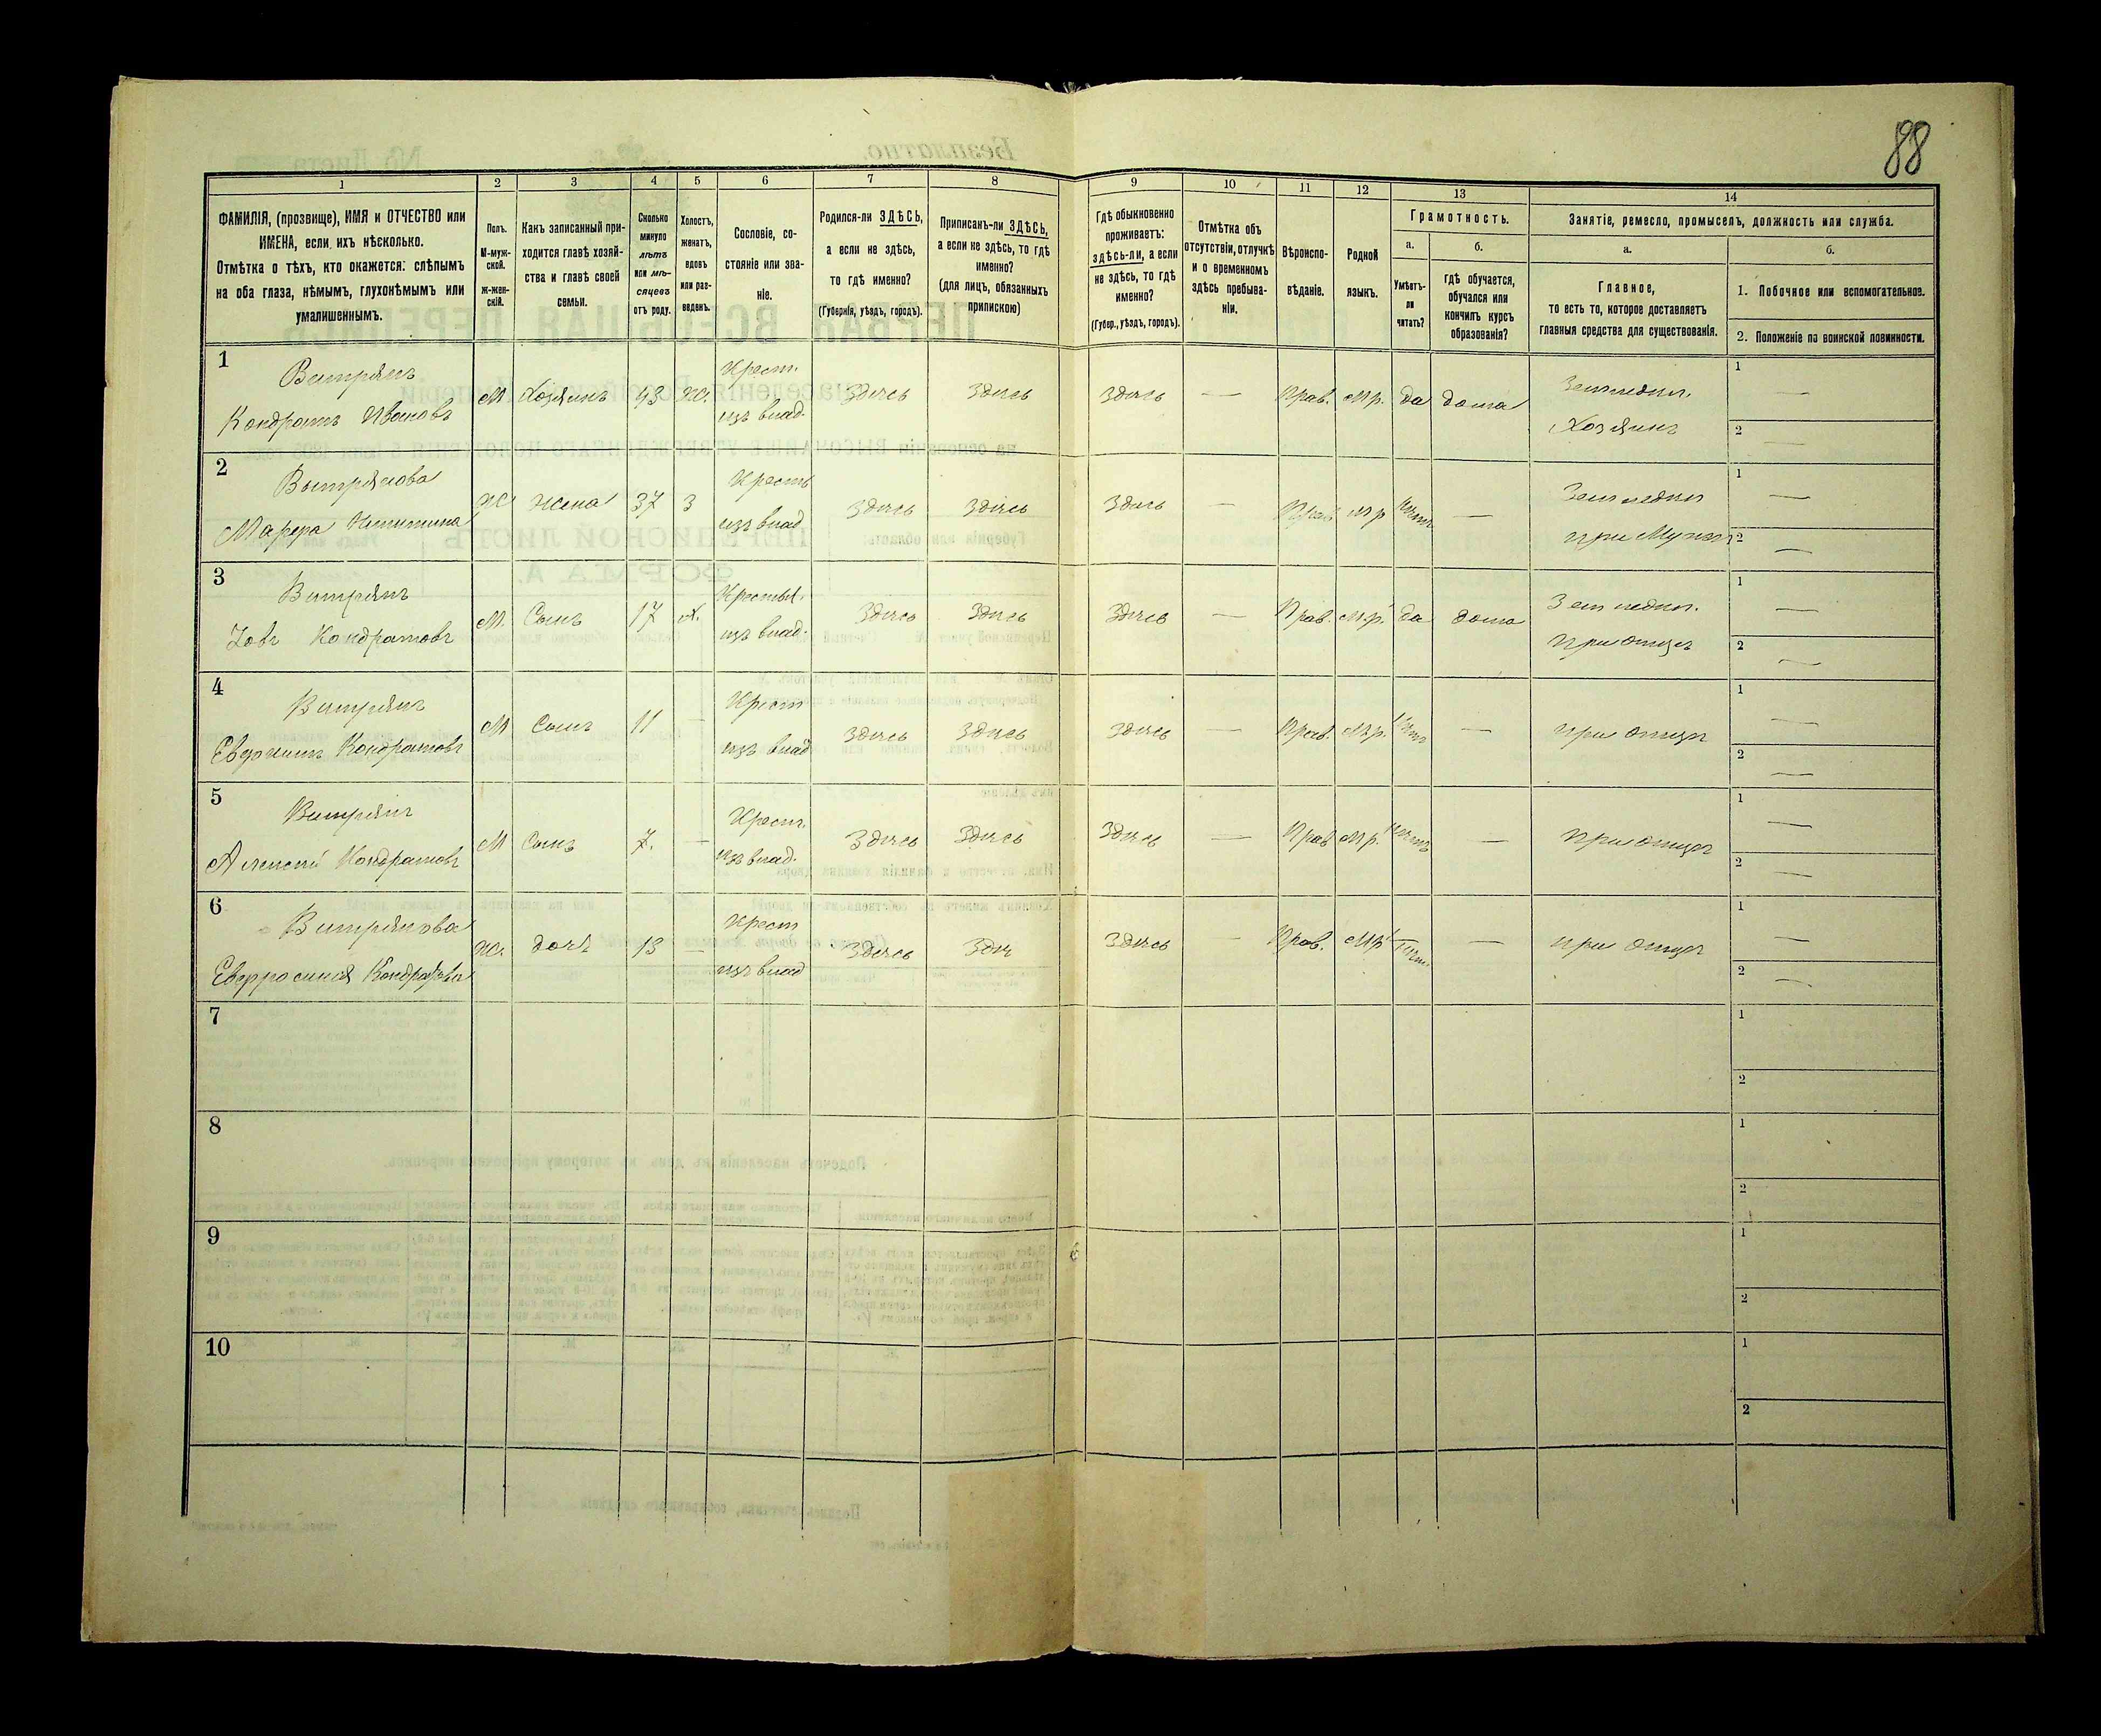 88
1 2 3 4 5 6 7 8 9 10 11 12 13 14
ФАМИЛІЯ, (прозвище), ИМЯ и ОТЧЕСТВО или
ИМЕНА, если ихъ нѣсколько.
Отмѣтка о тѣхъ, кто окажется: слѣпымъ
на оба глаза, нѣмымъ, глухонѣмымъ или
умалишеннымъ.
Полъ.
М-муж-
ской.
ж-жен-
скій.
Какъ записанный при-
ходится главѣ хозяй-
ства и главѣ своей
семьи.
Сколько
минуло
лѣтъ
или мѣ-
сяцевъ
отъ роду.
Холостъ,
женатъ,
вдовъ
или раз-
веденъ.
Сословіе, со-
стояніе или зва-
ніе.
Родился-ли ЗДѢСЬ,
а если не здѣсь,
то гдѣ именно?
(Губернія, уѣздъ, городъ).
Приписанъ-ли ЗДѢСЬ,
а если не здѣсь, то гдѣ
именно?
(для лицъ, обязанныхъ
припискою)
Гдѣ обыкновенно
проживаетъ:
здѣсь-ли, а если
не здѣсь, то гдѣ
именно?
(Губер., уѣздъ, городъ).
Отмѣтка объ
отсутствіи, отлучкѣ
и о временномъ
здѣсь пребыва-
ніи.
Вѣроиспо-
вѣданіе.
Родной
языкъ.
Грамотность.
а.
Умѣетъ-
ли
читать?
б.
гдѣ обучается,
обучался или
кончилъ курсъ
образованія?
Занятіе, ремесло, промыселъ, должность или служба.
а.
Главное,
то есть то, которое доставляетъ
главныя средства для существованія.
б.
1. Побочное или вспомогательное.
2. Положеніе по воинской повинности.
1
Витрянъ
Кондратъ Ивановъ
М Хозяинъ 43 Ж.
Крест.
изъ влад.
Здѣсь Здѣсь Здѣсь — Прав. Мр. да дома
Земледѣл.
Хозяинъ
1 —
2 —
2
Витрянова
Марфа Никитина
Ж Жена 37 З
Крест
изъ влад
Здѣсь Здѣсь Здѣсь — Прав мр нѣтъ —
Земледѣл
при Мужѣ
1 —
2 —
3
Витрянъ
Іовъ Кондратовъ
М. Сынъ 17 х.
Крестья.
изъ влад.
Здѣсь Здѣсь Здѣсь — Прав. м.р. да дома
Земледѣл.
при отцѣ
1 —
2 —
4
Витрянъ
Евдокимъ Кондратовъ
М Сынъ 11 —
Крест
изъ влад
Здѣсь Здѣсь Здѣсь — Прав. Мр. нѣтъ —
при отцѣ
1 —
2 —
5
Витрянъ
Алексѣй Кондратовъ
М Сынъ 7. —
Крест.
изъ влад.
Здѣсь Здѣсь Здѣсь — Прав Мр. нѣтъ —
при отцѣ
1 —
2 —
6
Витрянова
Евфросинія Кондратова
Ж. дочь 13 —
Крест
изъ влад
Здѣсь Здѣ Здѣсь — Прав. Мр нѣт. —
при отцѣ
1 —
2 —
7
1
2
8
1
2
9
1
2
10
1
2